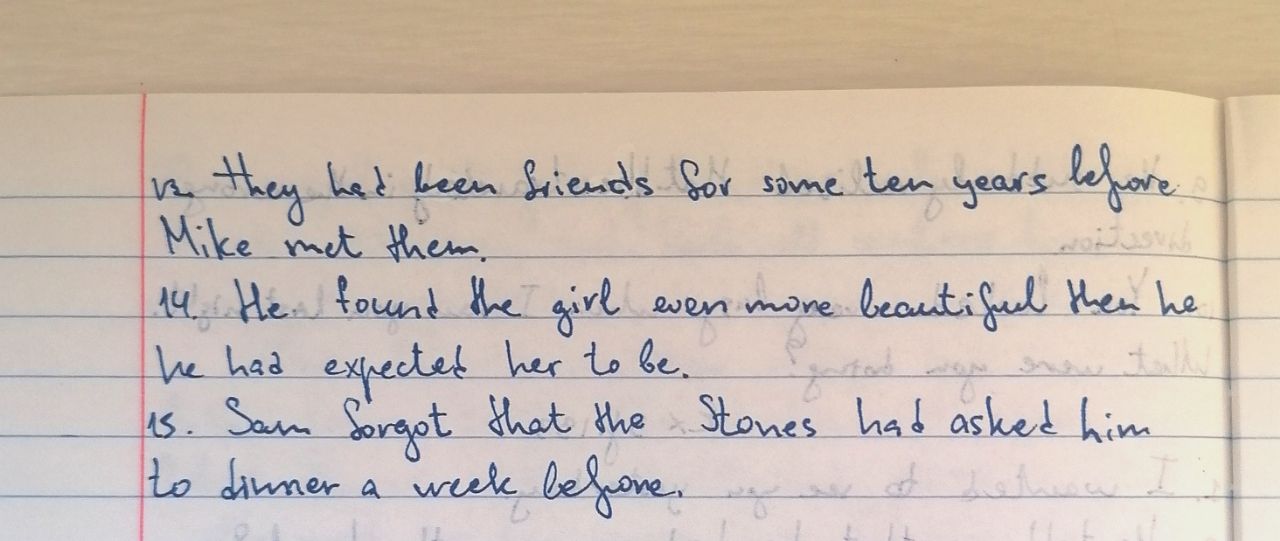 13. They had been friends for some ten years before
Mike met them.
14. He found the girl even more beautiful then he
he had expected her to be.
15. Sam forgot that the Stones had asked him
to dinner a week before.